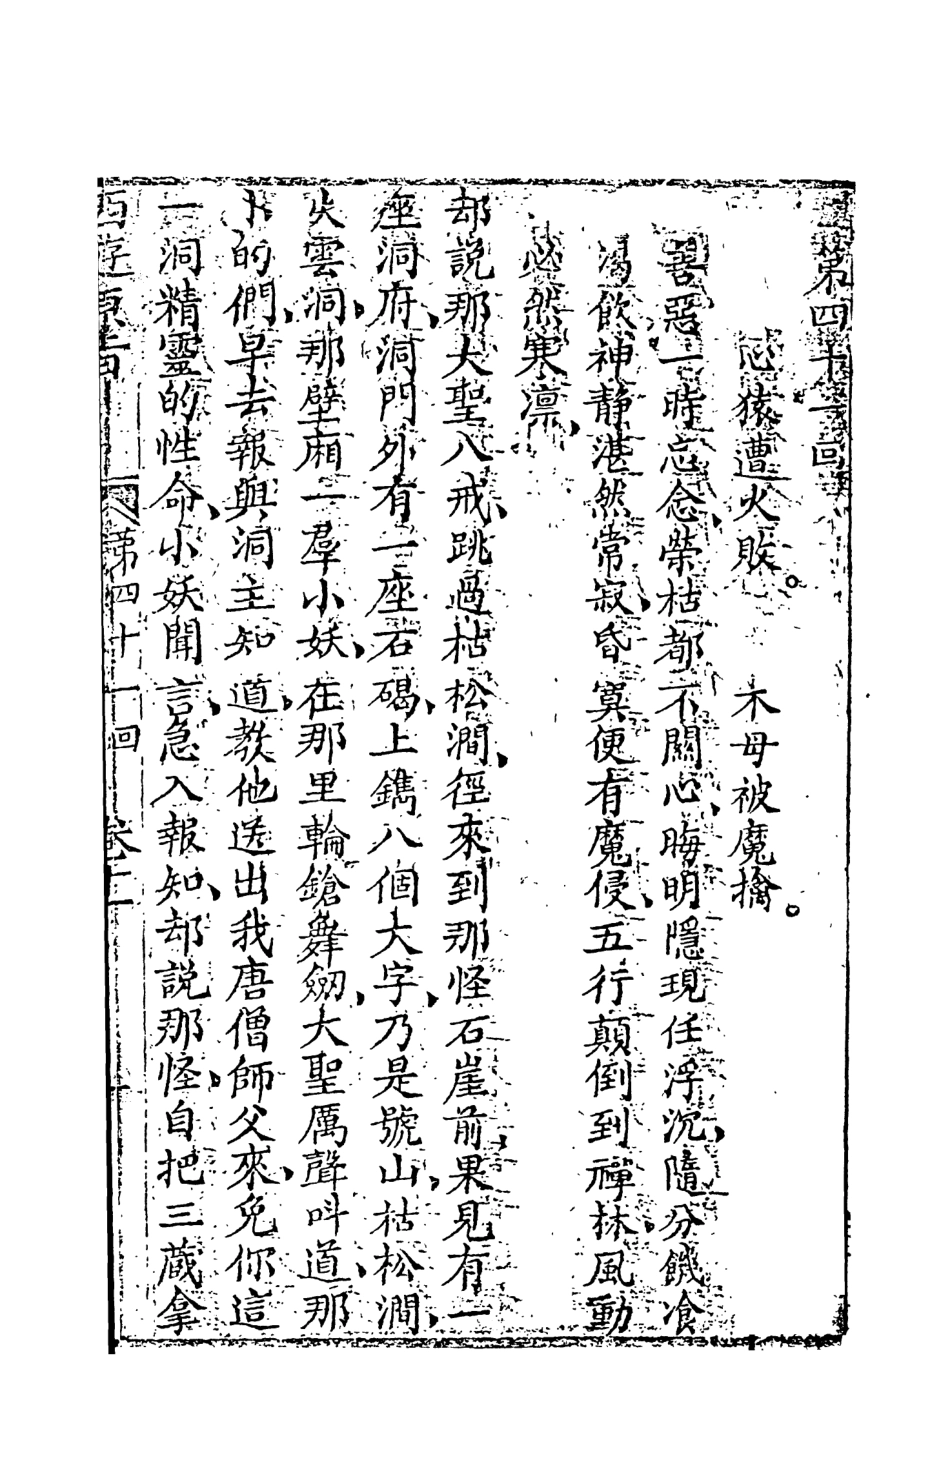 第四十一回
心猿遭火敗。　木母被魔擒。
善惡一時忘念、榮枯都不關心、晦明隱現任浮沉、隨分饑飡
渴飲、神靜湛然常寂、昏寞便有魔侵、五行顛倒到禪林、風動
必然寒凛、
却說那大聖八戒、跳過枯松澗、徑來到那怪石崖前、果見有一
座洞府、洞門外有一座石碣、上鐫八個大字、乃是號山、枯松澗、
火雲洞、那壁廂一羣小妖、在那里輪鎗舞劒、大聖厲聲呌道、那
小的們、早去報與洞主知道、教他送出我唐僧師父來、免你這
一洞精靈的性命、小妖聞言、急入報知、却說那怪、自把三藏拿
西遊　第四十一回　卷十一